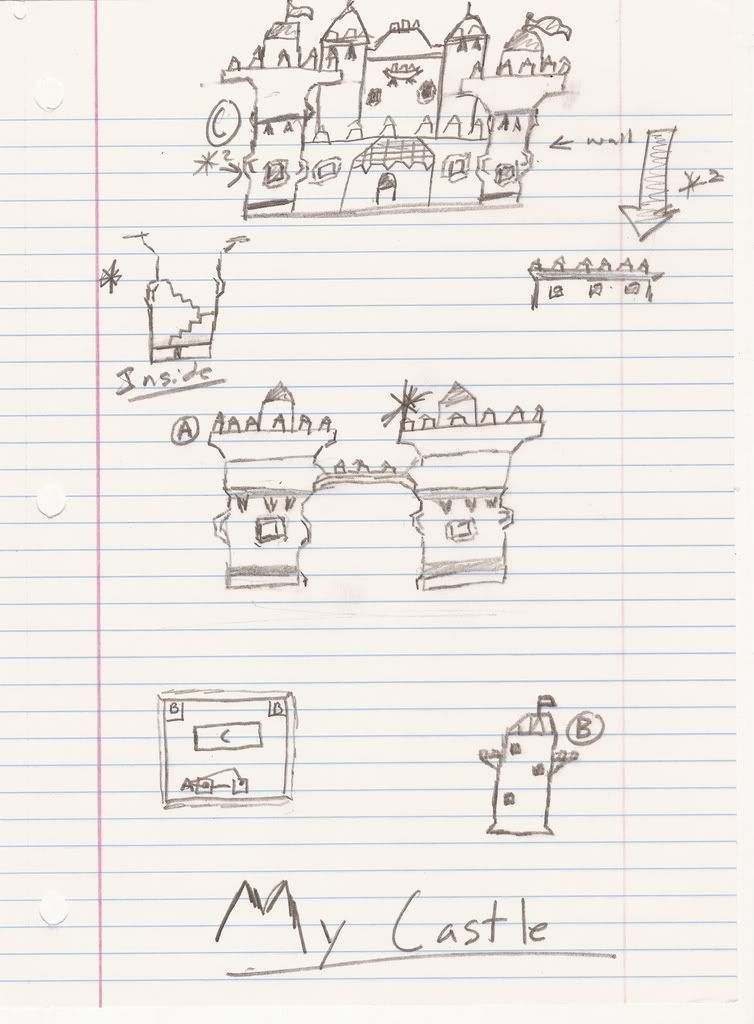 C
wall
*2
*2
*
Inside
A
*
B B
C
A
B
My Castle